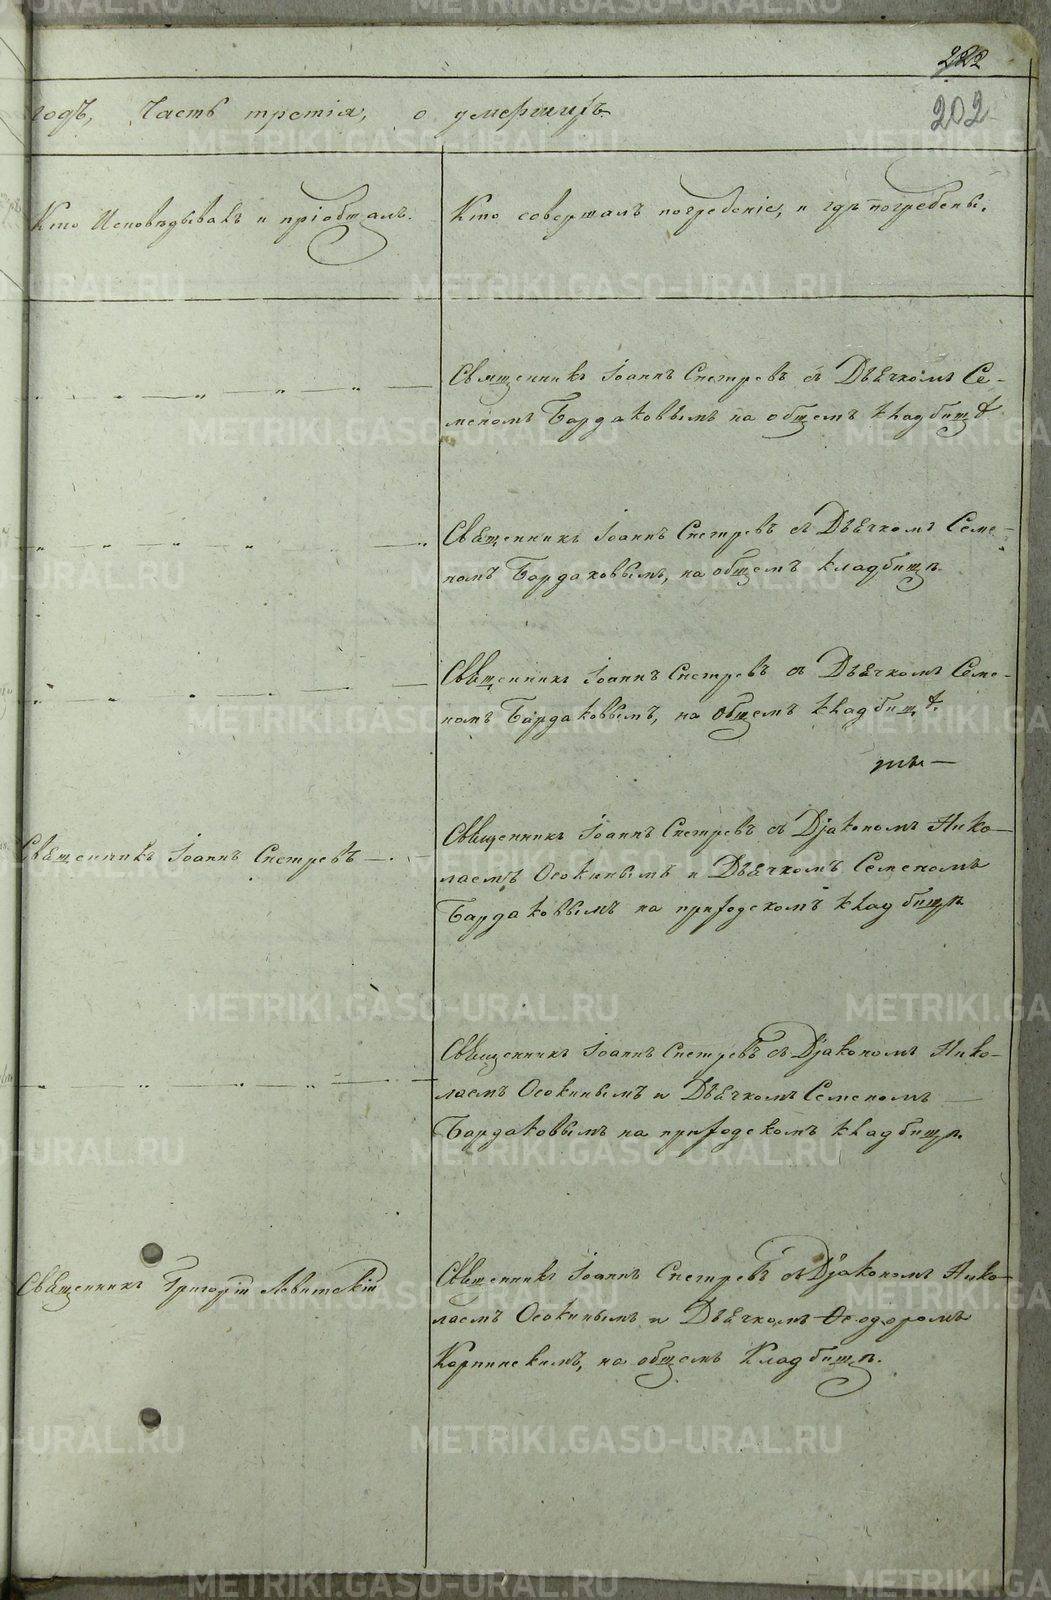 222
202
годъ, Часть третія, о умершихъ
Кто Исповѣдывалъ и пріобщалъ.
Кто совершалъ погребеніе, и гдѣ погребены.
Священникъ Іоаннъ Снетревъ съ Дьячкомъ Се-
меномъ Бардаковымъ на общемъ кладбищѣ
Священникъ Іоаннъ Снетревъ съ Дьячкомъ Семе-
номъ Бардаковымъ, на общемъ кладбищѣ.
Священникъ Іоаннъ Снетревъ съ Дьячкомъ Семе-
номъ Бардаковымъ, на общемъ кладбищѣ.
Священникъ Іоаннъ Снетревъ
Священникъ Іоаннъ Снетревъ съ Діакономъ Нико-
лаемъ Осокинымъ и Дьячкомъ Семеномъ
Бардаковымъ на приходскомъ кладбищѣ
Священникъ Іоаннъ Снетревъ съ Діакономъ Нико-
лаемъ Осокинымъ и Дьячкомъ Семеномъ
Бардаковымъ на приходскомъ кладбищѣ.
Священникъ Григорій Левитскій
Священникъ Іоаннъ Снетревъ съ Діакономъ Нико-
лаемъ Осокинымъ и Дьячкомъ Ѳеодоромъ
Карпинскимъ, на общемъ Кладбищѣ.
METRIKI.GASO-URAL.RU